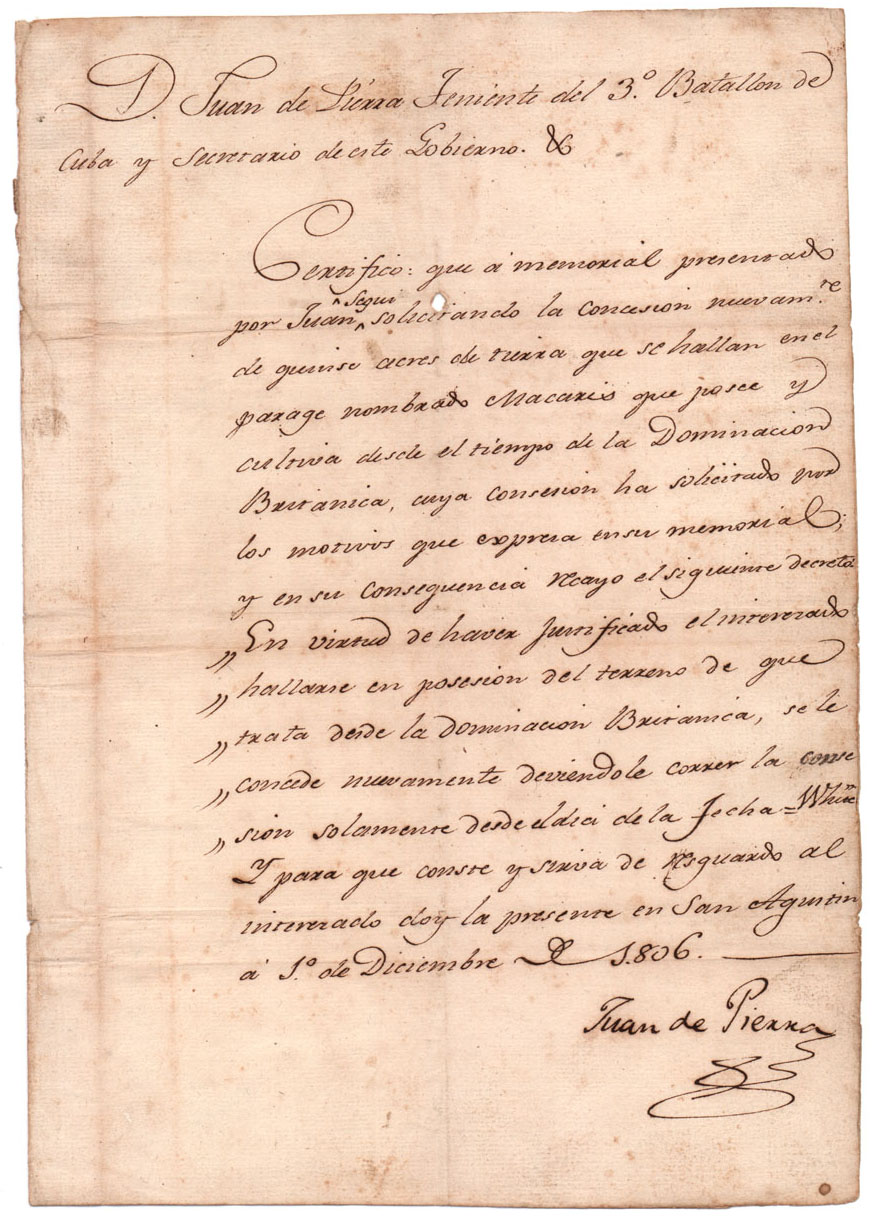 D. Juan de Pierra Teniente del 3.º Batallon de
Cuba y Secretario de este Gobierno. &
Certifico: que á memorial presentado
por Juan ^Segui solicitando la concesion nuevam.te
de quinse acres de tierra que se hallan en el
parage nombrado Macaris que posee y
cultiva desde el tiempo de la Dominacion
Britanica, cuya consesion ha solicitado por
los motivos que expresa en su memorial;
y en su consequencia recayo el siguiente decreto
„ En virtud de haver justificado el interesado
„ hallarse en posesion del terreno de que
„ trata desde la dominacion Britanica, se le
„ concede nuevamente deviendole correr la conse
„ sion solamente desde el dia de la fecha = White
Y para que conste y sirva de resguardo al
interesado doy la presente en San Agustin
á 1.º de Diciembre de 1806.
Juan de Pierra